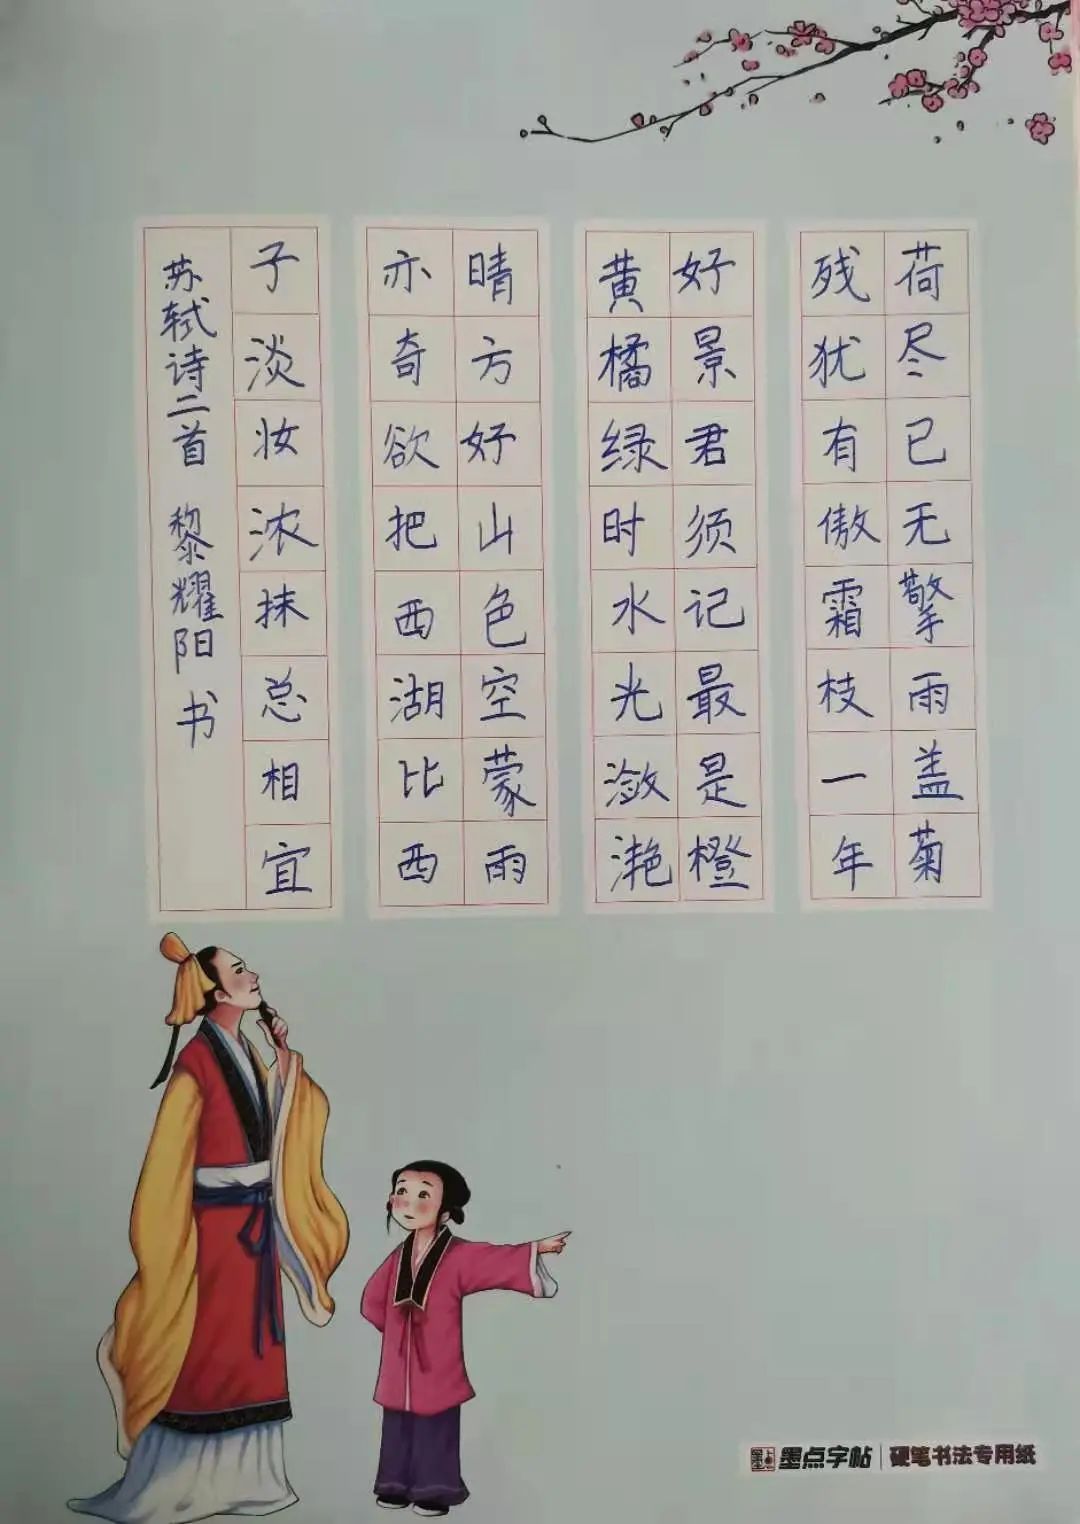 荷尽已无擎雨盖菊
残犹有傲霜枝一年
好景君须记最是橙
黄橘绿时水光潋滟
晴方好山色空蒙雨
亦奇欲把西湖比西
子淡妆浓抹总相宜
苏轼诗二首 黎耀阳 书
墨点字帖 | 硬笔书法专用纸